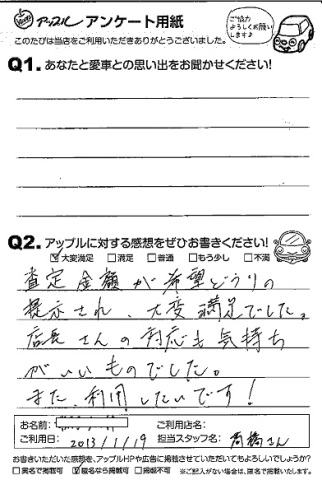 アップル アンケート用紙
ご協力
よろしくお願い
します♪
このたびは当店をご利用いただきありがとうございました。
Q1. あなたと愛車との思い出をお聞かせください!
Q2. アップルに対する感想をぜひお書きください!
☑大変満足 □満足 □普通 □もう少し □不満
査定金額が希望どうりの
提示され、大変満足でした。
店長さんの対応も気持ち
がいいものでした。
また、利用したいです!
お名前: ご利用店名:
ご利用日: 2013/1/19 担当スタッフ名: 高橋さん
お書きいただいた感想を、アップルHPや広告に掲載させていただいてもよろしいでしょうか?
□実名で掲載可 ☑匿名なら掲載可 □掲載不可 ※ご記入がない場合は、匿名で掲載いたします。